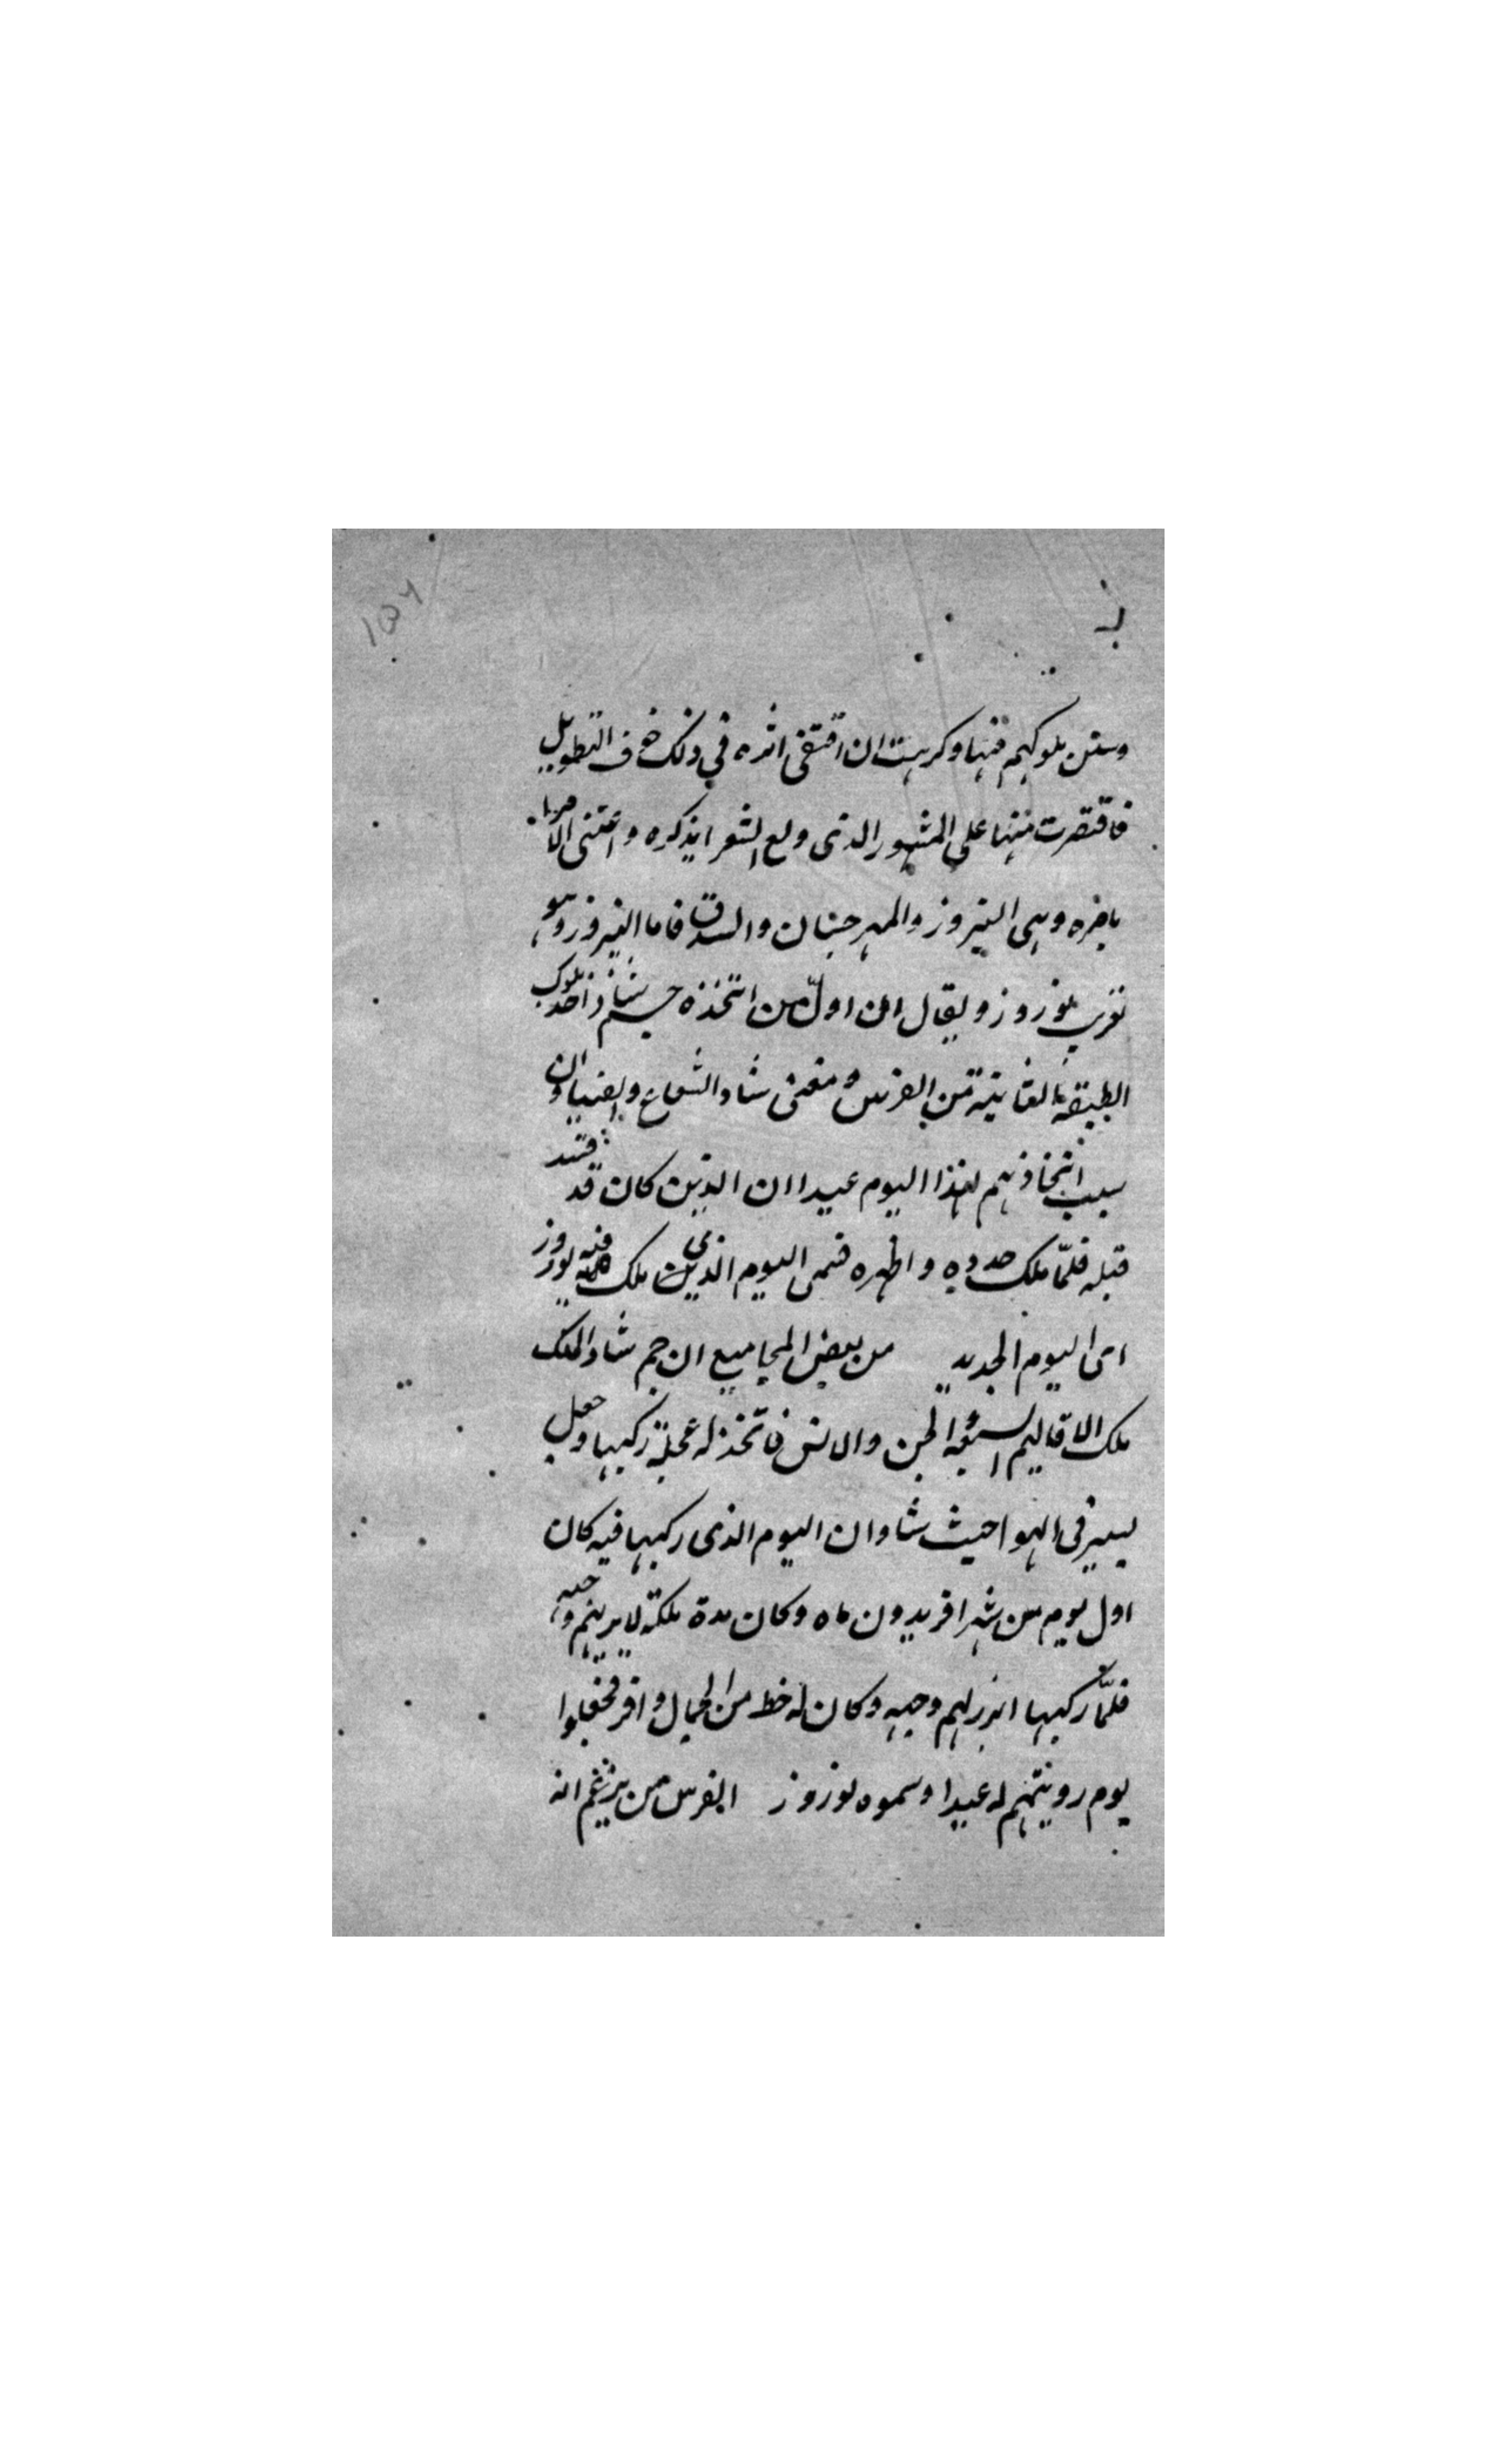 وسنن ملوكهم فيها وكرهت ان اقتفى اثره في ذلك خوف التطويل
فاقتصرت منها على المشهور الذى ولع الشعرا بذكره واعتنى الامرا
بامره وهى النيروز والمهرجان والسدق فاما النيروز وهو
تعريب نوروز ويقال ان اول من اتخذه جم شاد احد ملوك
الطبقة الثانية من الفرس ومعنى شاد الشعاع والضيا وان
سبب اتخاذهم لهذا اليوم عيدا ان الدين كان قد فسد
قبله فلمّا ملك جدده واظهره فسمى اليوم الذى ملك فيه نوروز
اى اليوم الجديد من بعض المجاميع ان جم شاد الملك
ملك الاقاليم السبعة الجن والانس فاتخذ له عجلة ركبها وجعل
يسير فى الهوا حيث شا وان اليوم الذى ركبها فيه كان
اول يوم من شهر افريدون ماه وكان مدة ملكه لا يريهم وجهه
فلمّا ركبها ابرز لهم وجهه وكان له حظ من الجمال وافر فجعلوا
يوم رويتهم له عيدا وسموه نوروز الفرس من يزعم انه